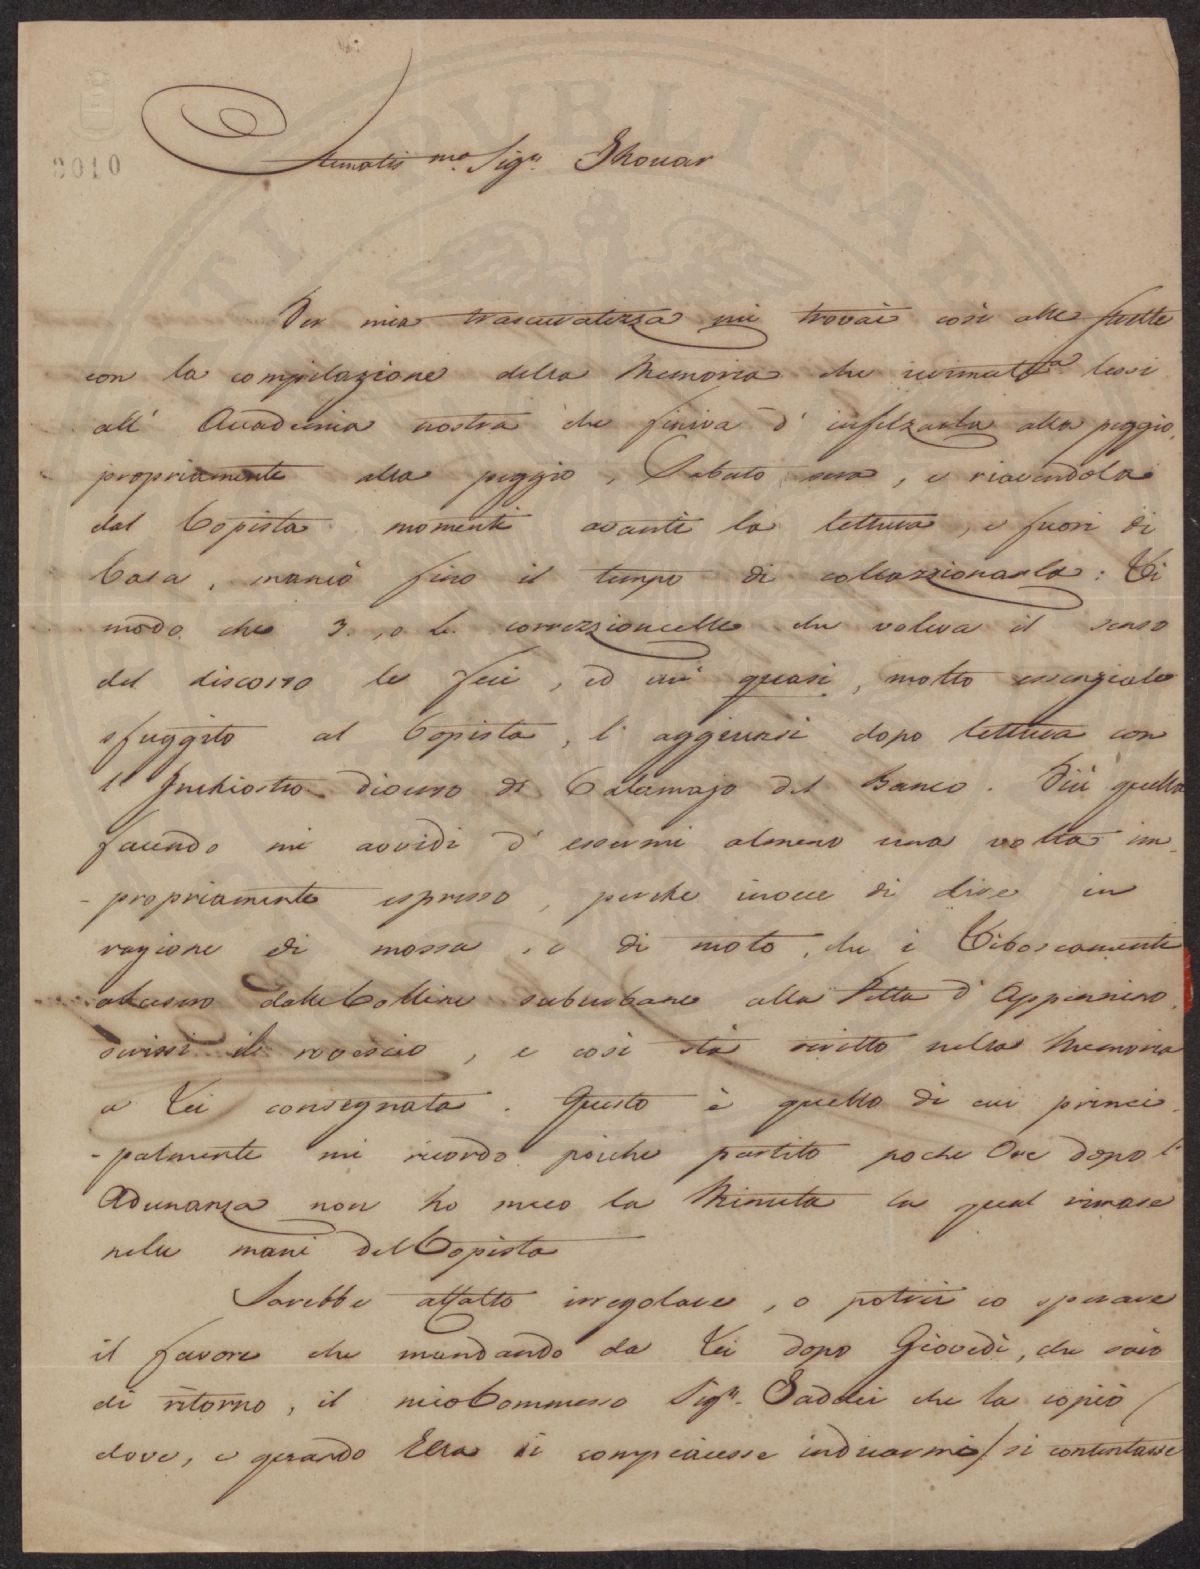 3010
Stimatis.mo Sig.r Thouar
Per mia trascuratezza mi trovai così alle strette
con la compilazione della Memoria che lessi
all' Accademia nostra che finiva d' infilzarla alla peggio,
propriamente alla peggio, Sabato sera, e riavendola
dal Copista momenti avanti la lettura, e fuori di
Casa, mancò fino il tempo di collazzionarla: Di
modo che 3. o 4. correzzioncelle che voleva il senso
del discorso le feci, ed un quasi, molto essenziale
sfuggito al Copista, l' aggiunsi dopo lettura con
l' Inchiostro di Calamajo del Banco. Più quello
facendo mi avvidi d' essermi almeno una volta im-
-propriamente espresso, perche invece di dire in
ragione di mossa, e di moto, che i Diboscamenti
dalle Colline suburbane alla Vetta d' Appennino,
scrissi il rovescio, e così stà scritto nella Memoria
a Lei consegnata. Questo è quello di cui princi-
-palmente mi ricordo poiche partito poche Ore dopo l'
Adunanza non ho meco la Minuta la qual rimase
nelle mani del Copista
Sarebbe affatto irregolare, o potrei io sperare
il favore che mandando da Lei dopo Giovedì, che sarò
di ritorno, il mio Commesso Sig.r Taddei che la copiò /
dove, e quando Ella si compiacesse indicarmi / si contentasse